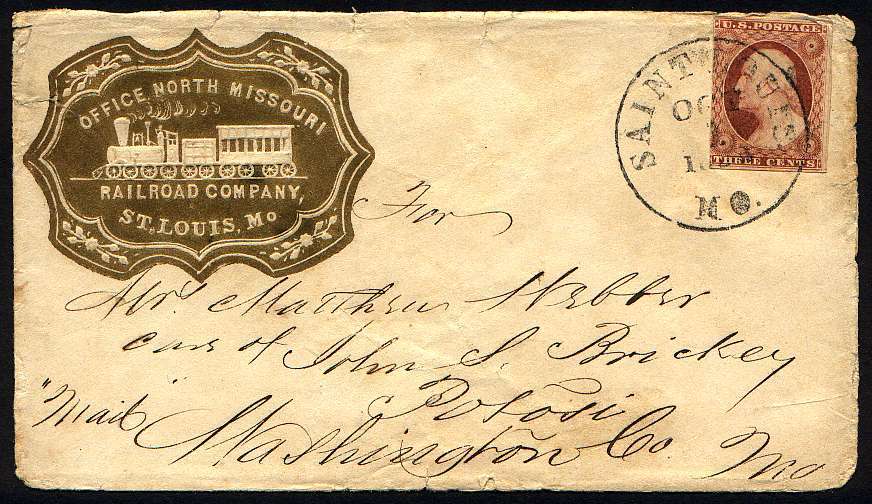 OFFICE NORTH MISSOURI
RAILROAD COMPANY,
ST. LOUIS, Mo
U.S. POSTAGE
THREE CENTS
SAINT LOUIS
MO.
For
Mr. Matthew Webber
care of John S. Brickey
Potosi
"Mail" Washington Co. Mo